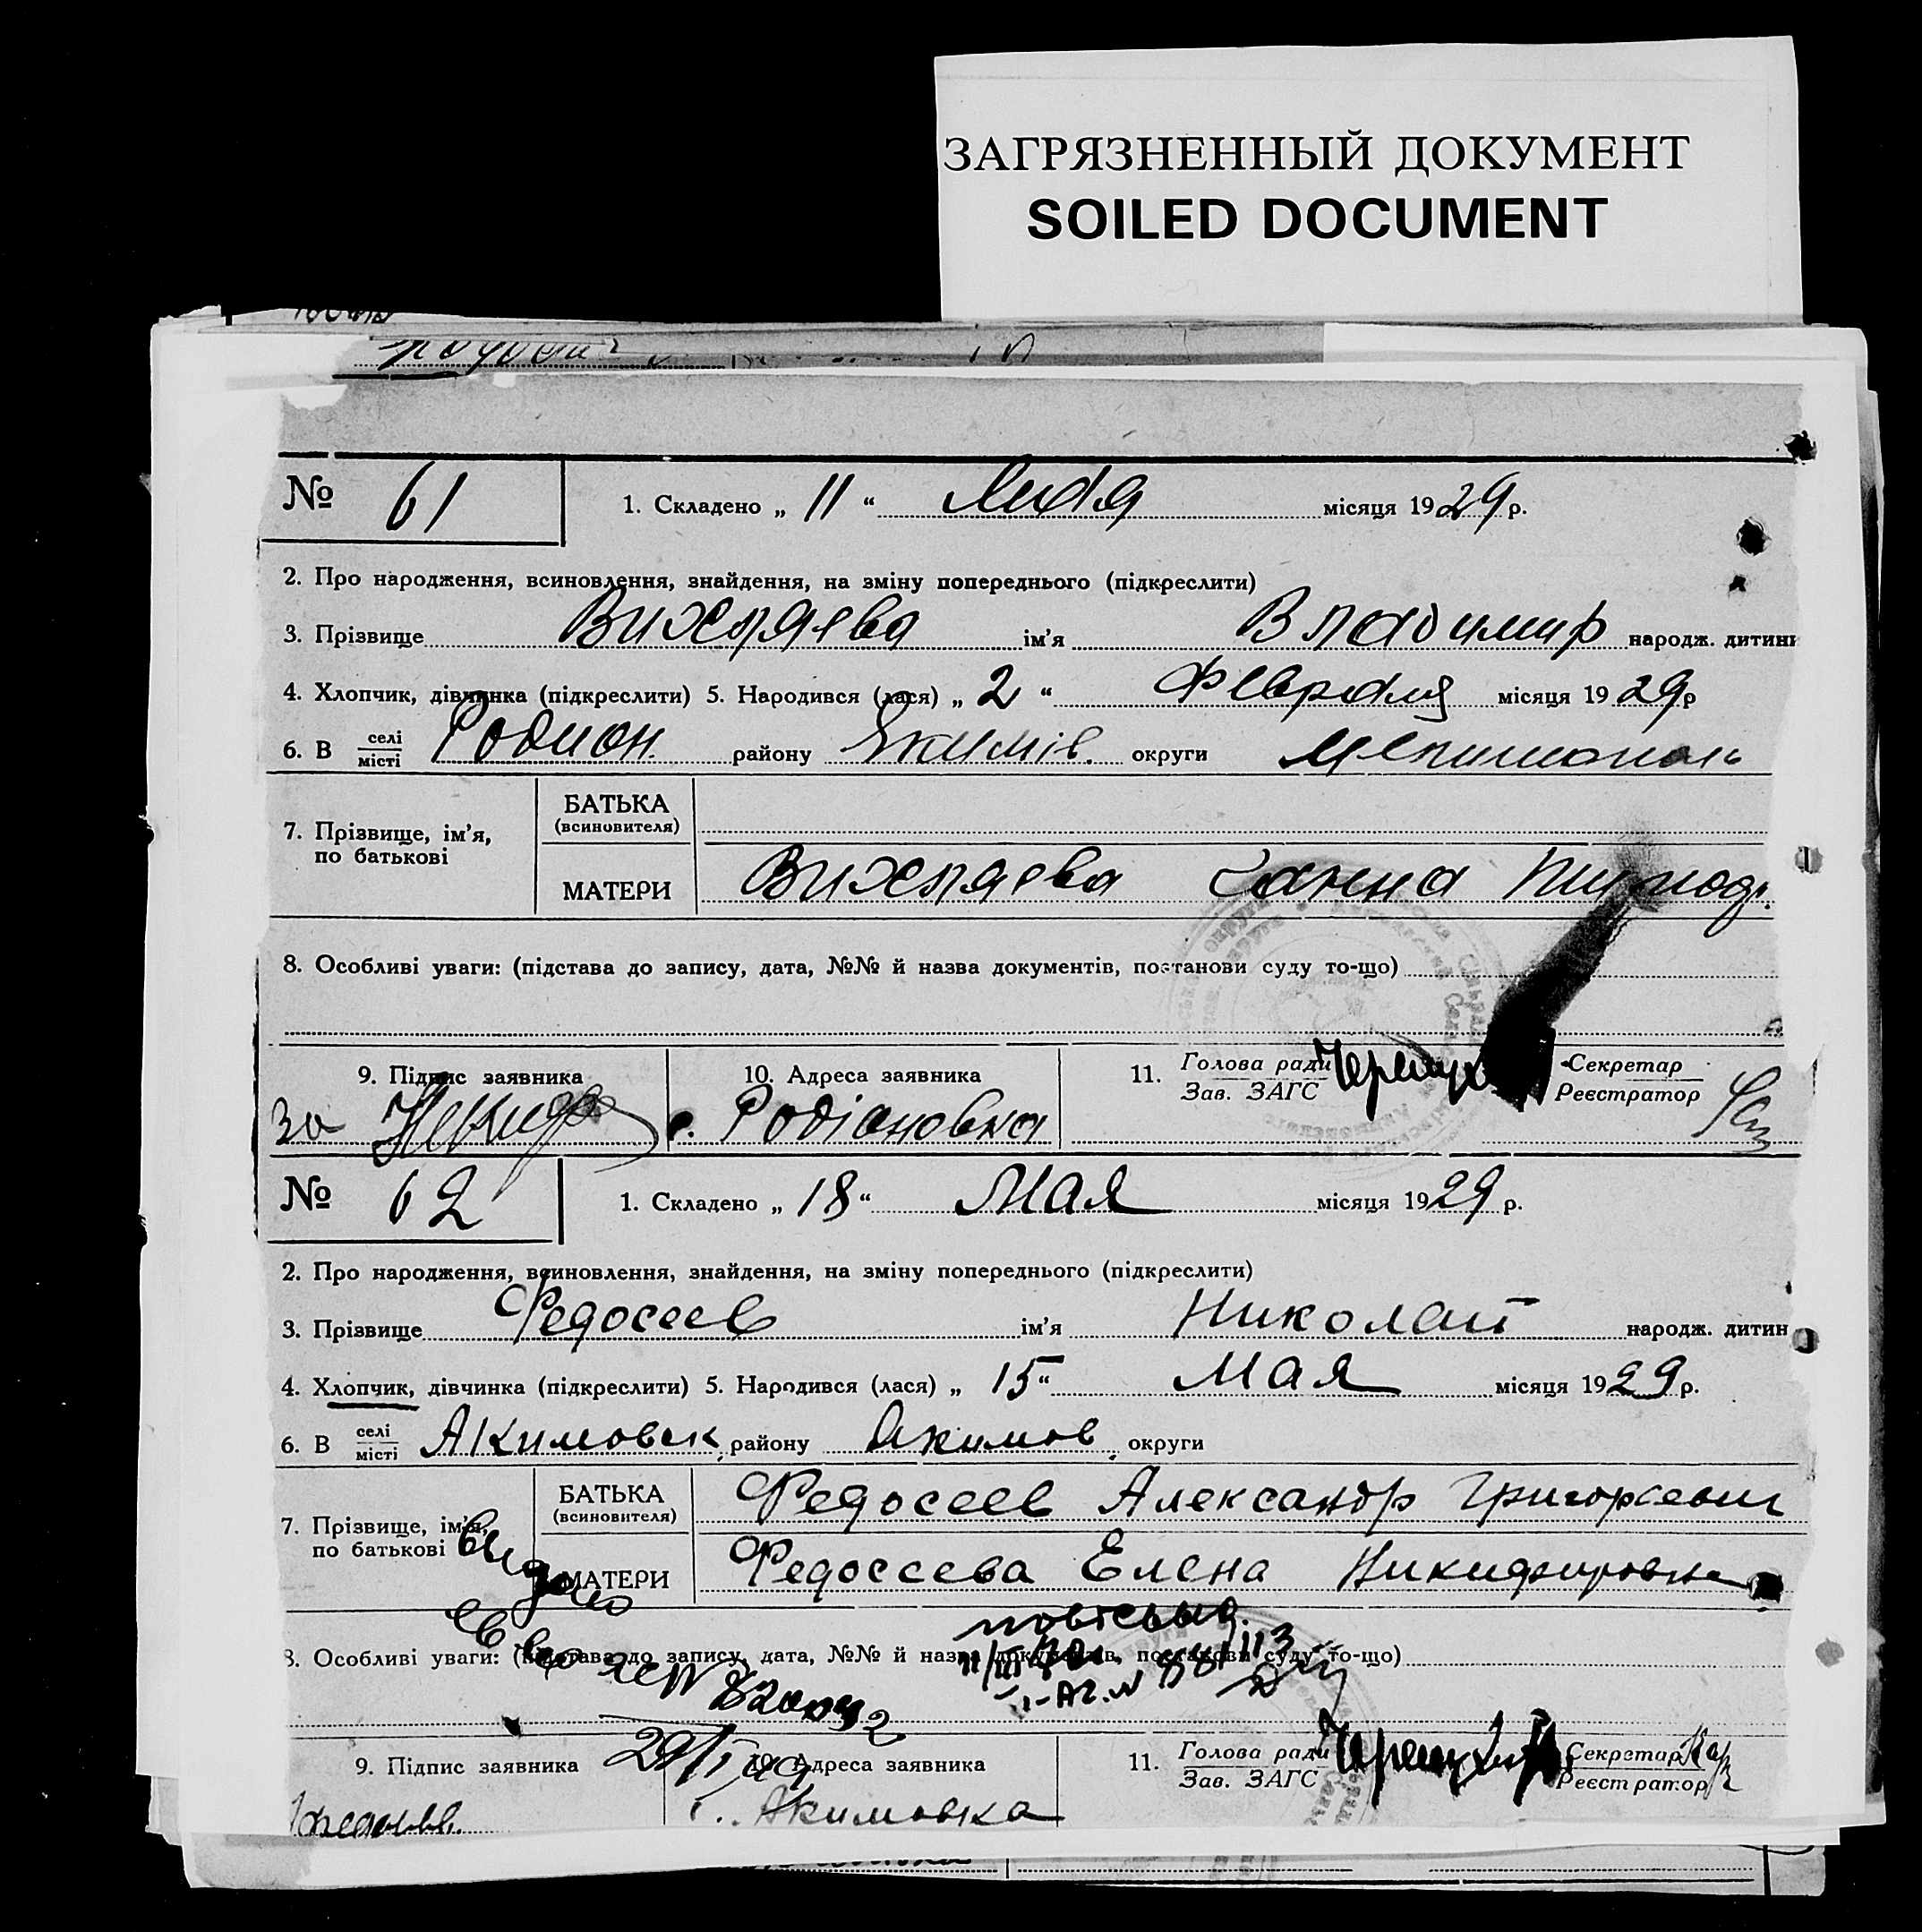 ЗАГРЯЗНЕННЫЙ ДОКУМЕНТ
SOILED DOCUMENT
№ 61 1. Складено „ 11 “ місяця 1929 р.
2. Про народження, всиновлення, знайдення, на зміну попереднього (підкреслити)
3. Прізвище Вихляева ім’я Владимир народж. дитини
4. Хлопчик, дівчинка (підкреслити) 5. Народився (лася) „ 2 “ Февраля місяця 1929 р
6. В селі місті Родион. району Якимів. округи Мелитополь
7. Прізвище, ім’я, по батькові
БАТЬКА (всиновителя)
МАТЕРИ Вихляева Ганна
8. Особливі уваги: (підстава до запису, дата, №№ й назва документів, постанови суду то-що)
9. Підпис заявника 10. Адреса заявника 11. Голова ради Зав. ЗАГС Секретар Реєстратор
за с. Родіановка
№ 62 1. Складено „ 18 “ Мая місяця 1929 р.
2. Про народження, всиновлення, знайдення, на зміну попереднього (підкреслити)
3. Прізвище Федосеев ім’я Николай народж. дитин
4. Хлопчик, дівчинка (підкреслити) 5. Народився (лася) „ 15 “ Мая місяця 1929 р.
6. В селі місті Акимовск. району Акимов. округи
7. Прізвище, ім’я, по батькові
БАТЬКА (всиновителя) Федосеев Александр Григорьевич
МАТЕРИ Федосеева Елена Никифировна
Выдано
8. Особливі уваги: (підстава до запису, дата, №№ й назва документів, постанови суду то-що)
9. Підпис заявника 10. Адреса заявника 11. Голова ради Зав. ЗАГС Секретар Реєстратор
с. Акимовка